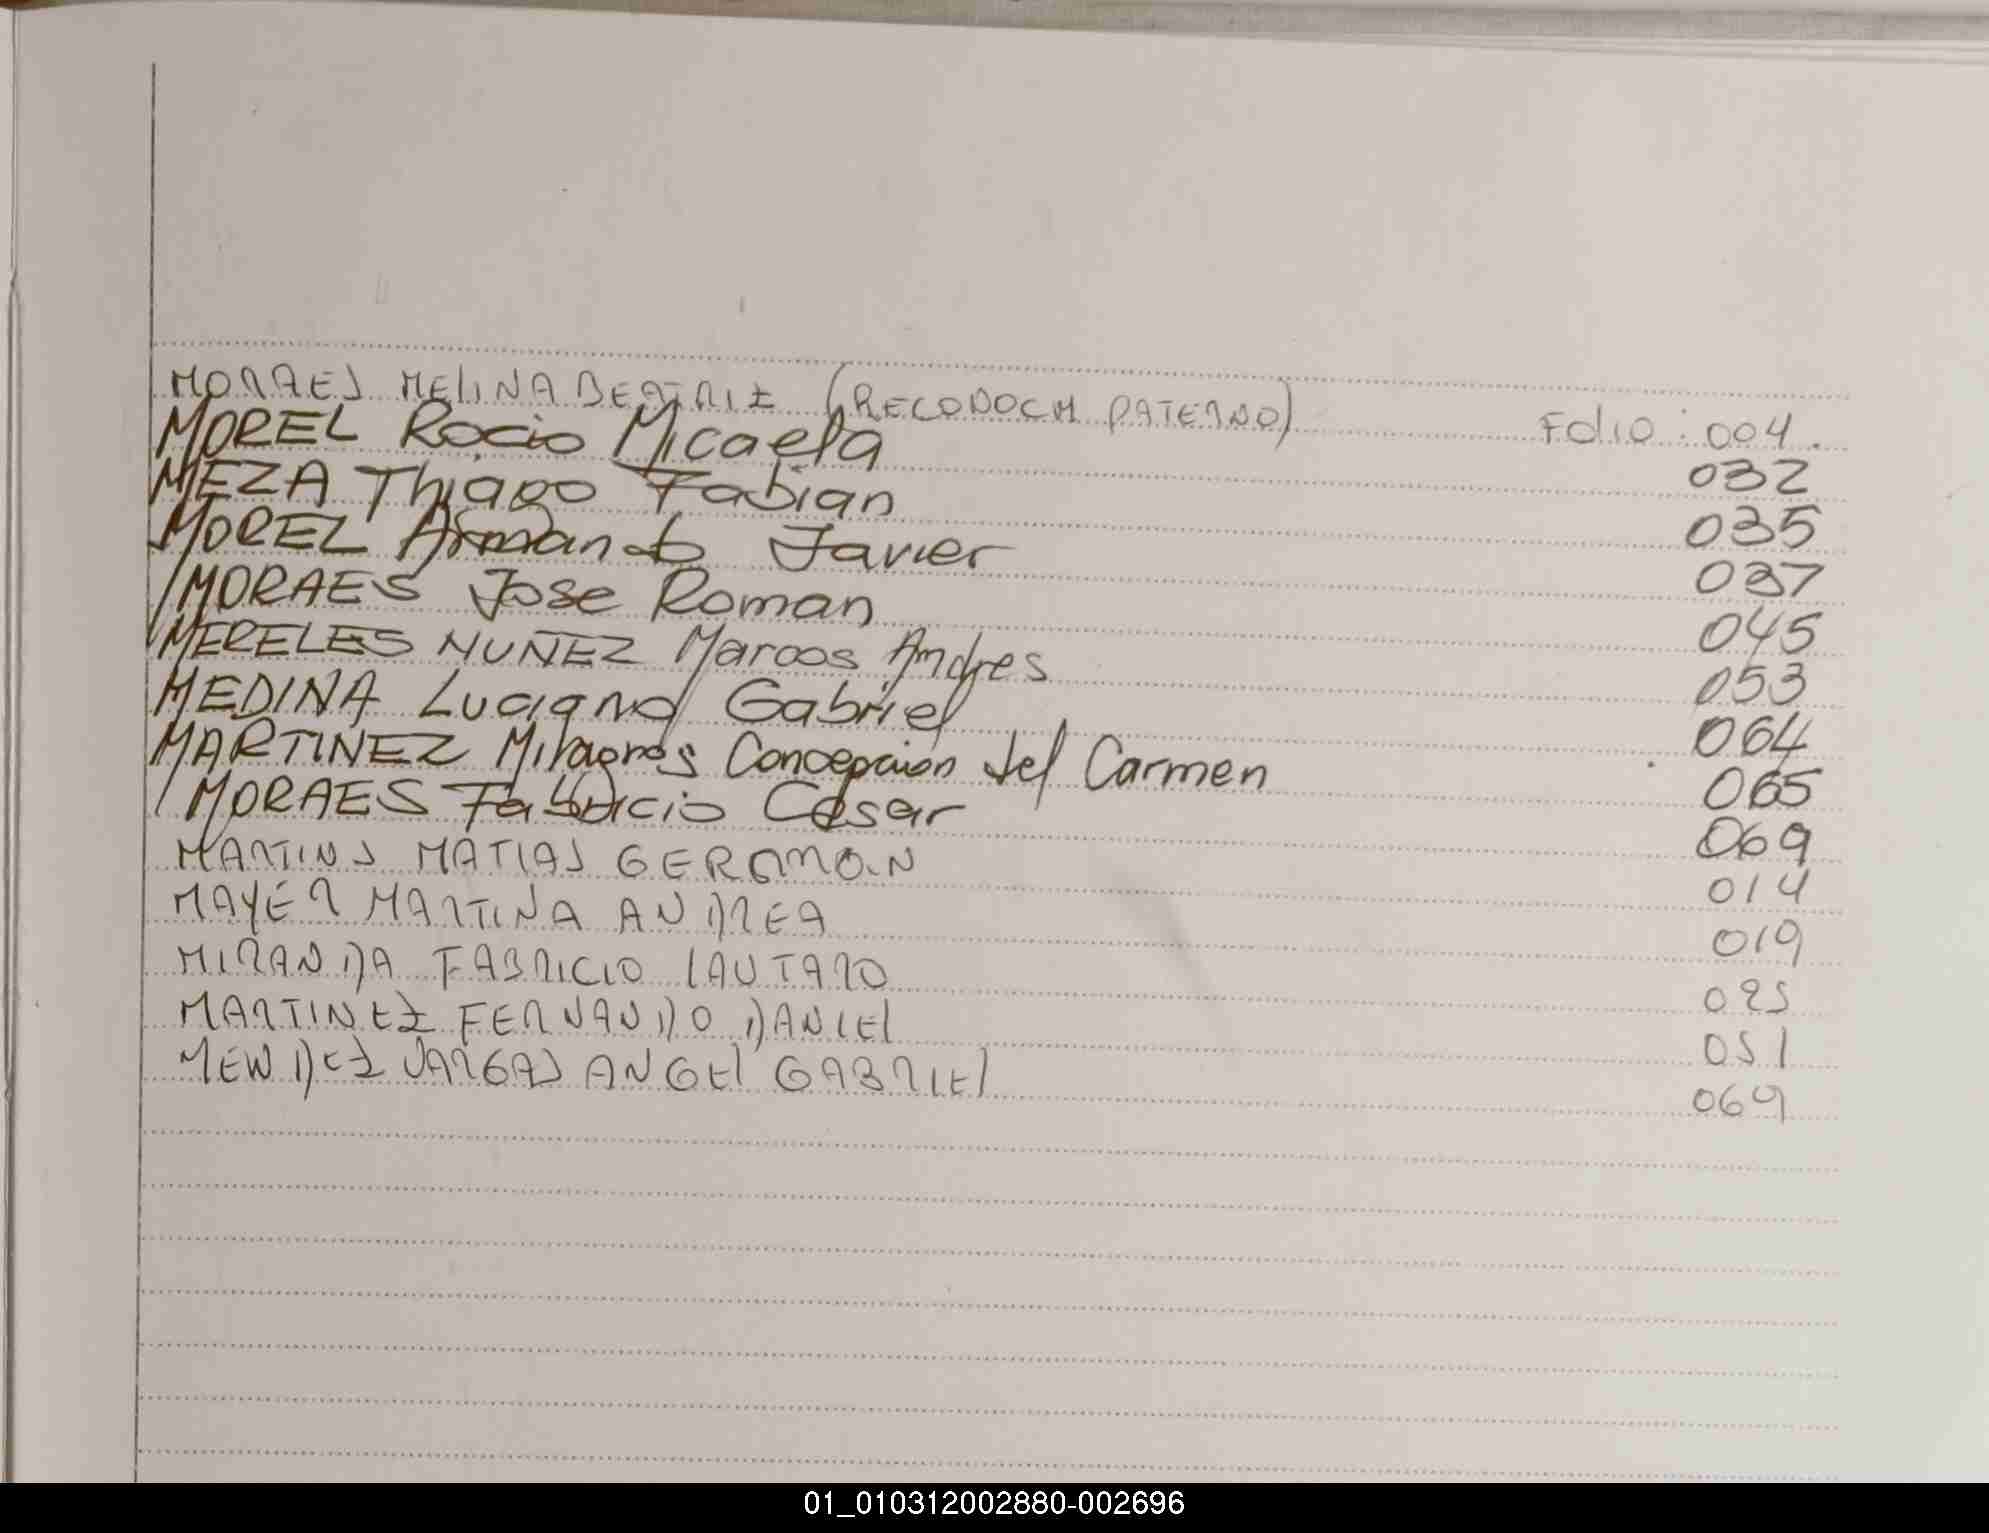 MORAES MELINA BEATRIZ (RECONOCIM PATERNO) Folio: 004.
MOREL Rocio Micaela 032
MEZA Thiago Fabian 035
MOREL Armando Javier 037
MORAES Jose Roman 045
MERELES NUÑEZ Marcos Andres 053
MEDINA Luciano Gabriel 064
MARTINEZ Milagros Concepcion del Carmen 065
MORAES Fabricio Cesar 069
MARTINS MATIAS GERAMON 014
MAYER MARTINA ANDREA 019
MIRANDA FABRICIO LAUTARO 025
MARTINEZ FERNANDO DANIEL 051
MENDEZ VARGAS ANGEL GABRIEL 069
01_010312002880-002696